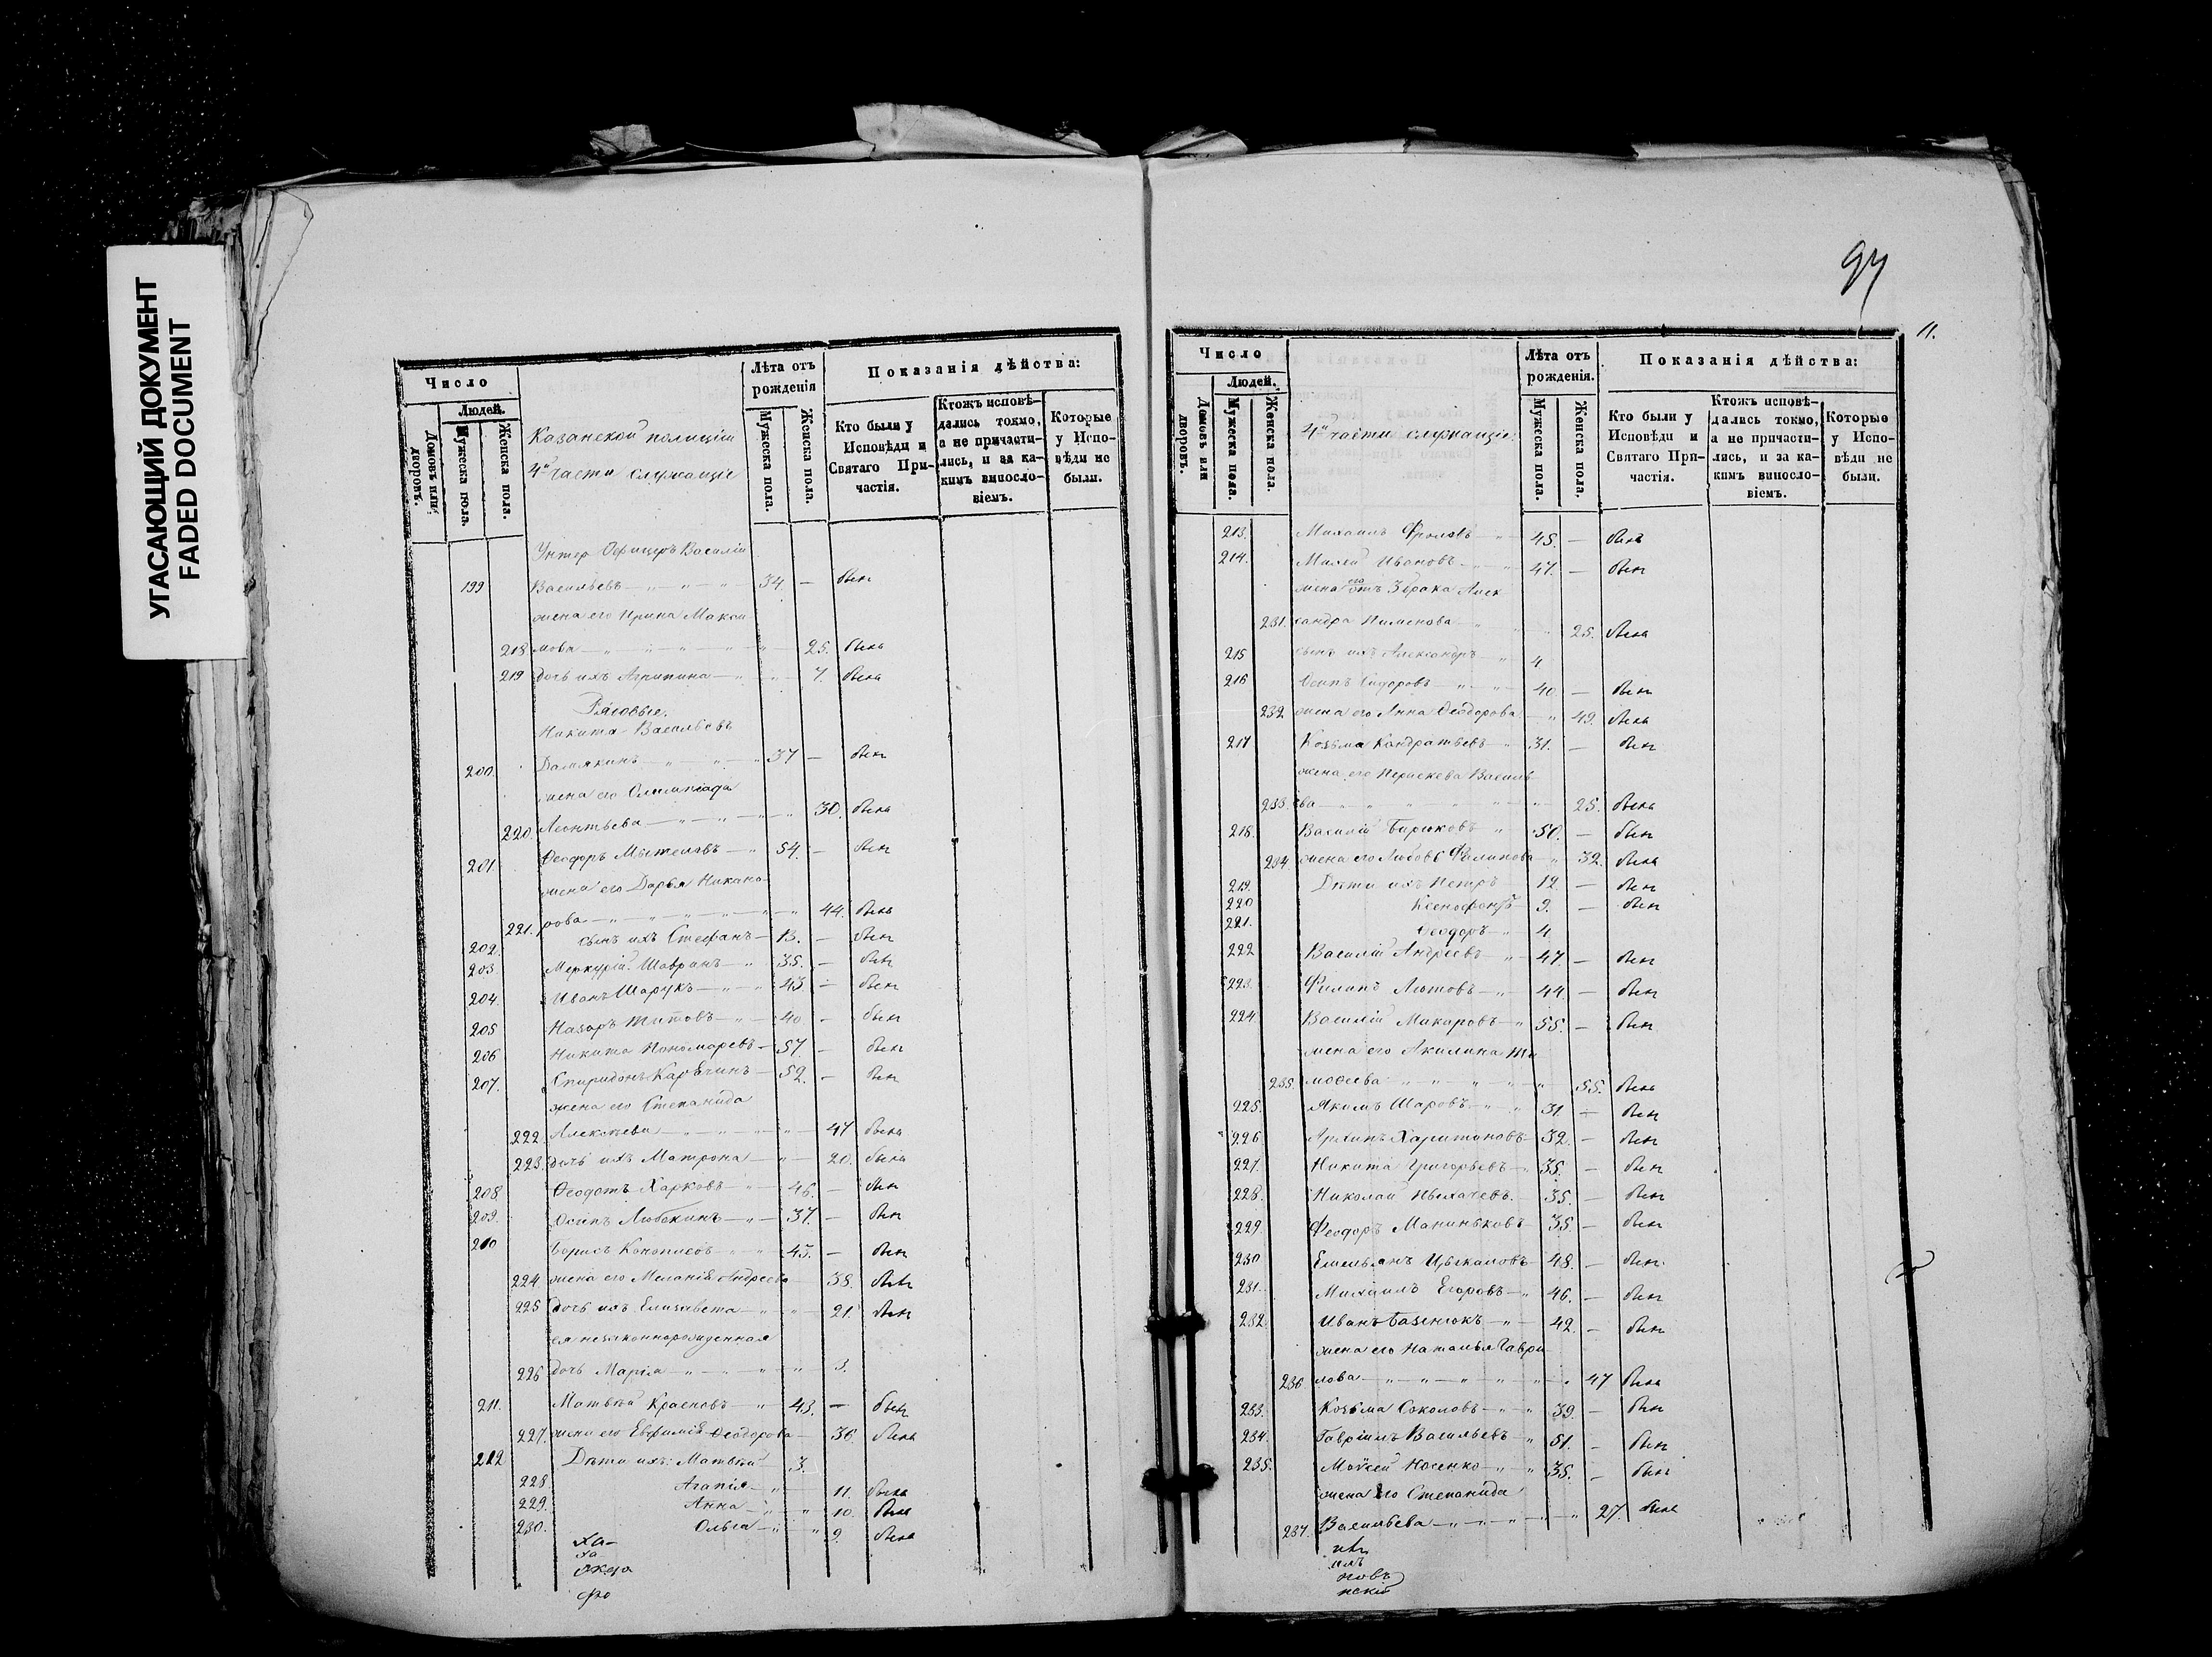 УГАСАЮЩИЙ ДОКУМЕНТ
FADED DOCUMENT
Число
Людей.
Домовъ или дворовъ.
Мужеска пола.
Женска пола.
Казанской полиціи
4й части служащіе
Лѣта отъ рожденія
Мужеска пола.
Женска пола.
Показанія дѣйства:
Кто были у Исповѣди и Святаго Причастія.
Ктожъ исповѣдались токмо, а не причастились, и за какимъ винословіемъ.
Которые у Исповѣди не были.
Унтер Офицеръ Василій
199 Васильевъ 34. — былъ
жена его Ирина Макси
218 мова 25. была
219 дочь ихъ Агрипина 7. была
Рядовые.
Никита Васильевъ
200. 37 — былъ
жена его Олимпіада
220. Леонтьева 30. была
201. Ѳеодоръ 54. — былъ
жена его Дарья Никано
221. рова 44. была
202. сынъ ихъ Стефанъ 13. — былъ
203. Меркурій Шавранъ 35. — былъ
204. Иванъ Шарукъ 43 — былъ
205 Назаръ Титовъ 40 — былъ
206 Никита Пономаревъ 57. — былъ
207. Спиридонъ 52. — былъ
жена его Степанида
222. Алексѣева 47 была
223. дочь ихъ Матрона 20. была
208. Ѳеодотъ Харковъ 46. — былъ
209. Осипъ Любскинъ 37. — былъ
210 Борисъ 45. — былъ
224. жена его Меланія Андреева 38. была
225 дочь ихъ Елизавета 21. была
ея незаконнорожденная
226 дочь Марія 3.
211. Матвѣй Красновъ 43. — былъ
227. жена его Евфимія Ѳеодорова 36. была
212 Дѣти ихъ: Матвѣй 3.
228. Агапія 11. была
229. Анна 10. была
230. Ольга 9. была
97
11.
Число
Людей.
Домовъ или дворовъ.
Мужеска пола.
Женска пола.
4й части служащіе.
Лѣта отъ рожденія.
Мужеска пола.
Женска пола.
Показанія дѣйства:
Кто были у Исповѣди и Святаго Причастія.
Ктожъ исповѣдались токмо, а не причастились, и за какимъ винословіемъ.
Которые у Исповѣди не были.
213. Михаилъ Фроловъ 45. — былъ
214. Ивановъ 47. — былъ
жена его отъ 3 брака Алек
231. сандра Пименова 25. была
215 сынъ ихъ Александръ 4
216 Осипъ Сидоровъ 40. — былъ
232 жена его Анна Ѳеодорова 49. была
217 Козьма Кондратьевъ 31. — былъ
жена его Параскева Василь
233. ева 25. была
218. Василій Бирюковъ 50. — былъ
234. жена его Любовь Филипова 32. была
219. Дѣти ихъ Петръ 12. — былъ
220 Ксенофонтъ 9. — былъ
221. Ѳеодоръ 4.
222 Василій Андреевъ 47. — былъ
223. Филипъ Лютовъ 44. — былъ
224. Василій Макаровъ 55. — былъ
жена его Акилина Ти
235. моѳеева 55. была
225. Якимъ Шаровъ 31. — былъ
226 Архипъ Харитоновъ 32. — былъ
227. Никита Григорьевъ 35. — былъ
228. Николай 35. — былъ
229. Феодоръ Маниньковъ 35. — былъ
230 Емельянъ Цыкаловъ 48. — былъ
231. Михаилъ Егоровъ 46. — былъ
232. Иванъ Базенюкъ 42. — былъ
жена его Наталья Гаври
236 лова 47 была
233. Козьма Соколовъ 39. — былъ
234. Гавріилъ Васильевъ 51. — былъ
235. Моѵсей Носенко 35. — былъ
жена его Степанида
237. Васильева 27. была